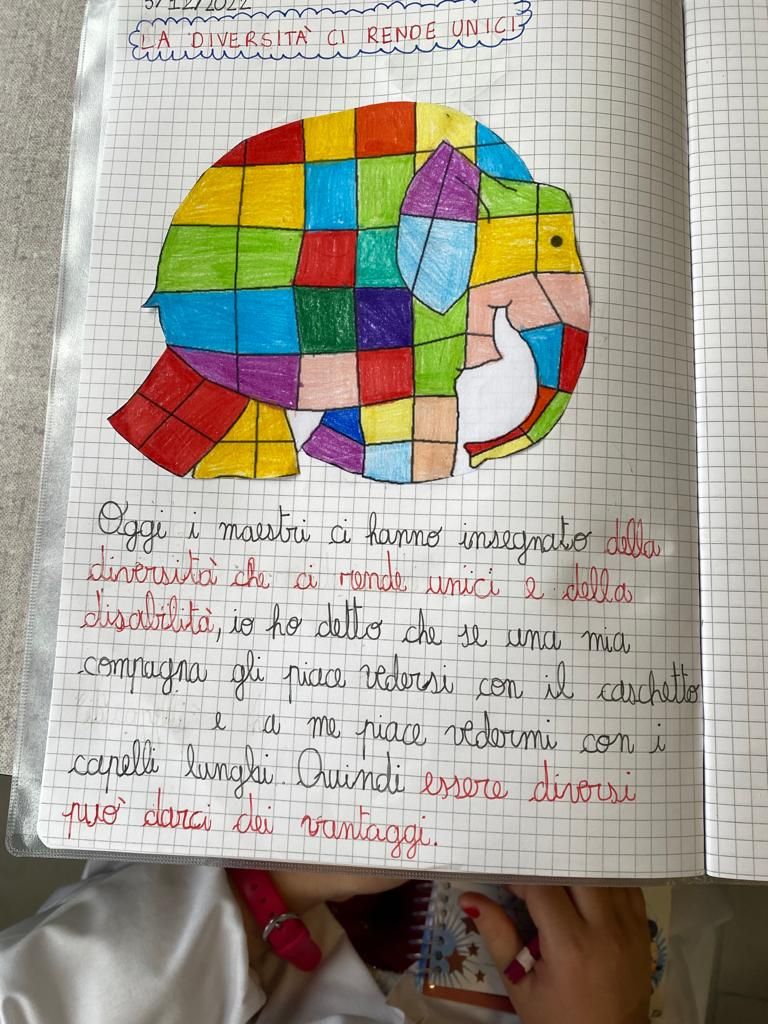 5/12/2022
LA DIVERSITÀ CI RENDE UNICI
Oggi i maestri ci hanno insegnato della
diversità che ci rende unici e della
disabilità, io ho detto che se una mia
compagna gli piace vedersi con il caschetto
e a me piace vedermi con i
capelli lunghi. Quindi essere diversi
può darci dei vantaggi.